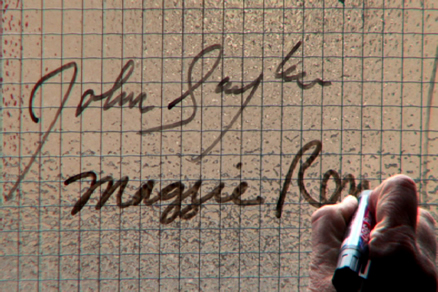 John Sayles
Maggie Ren